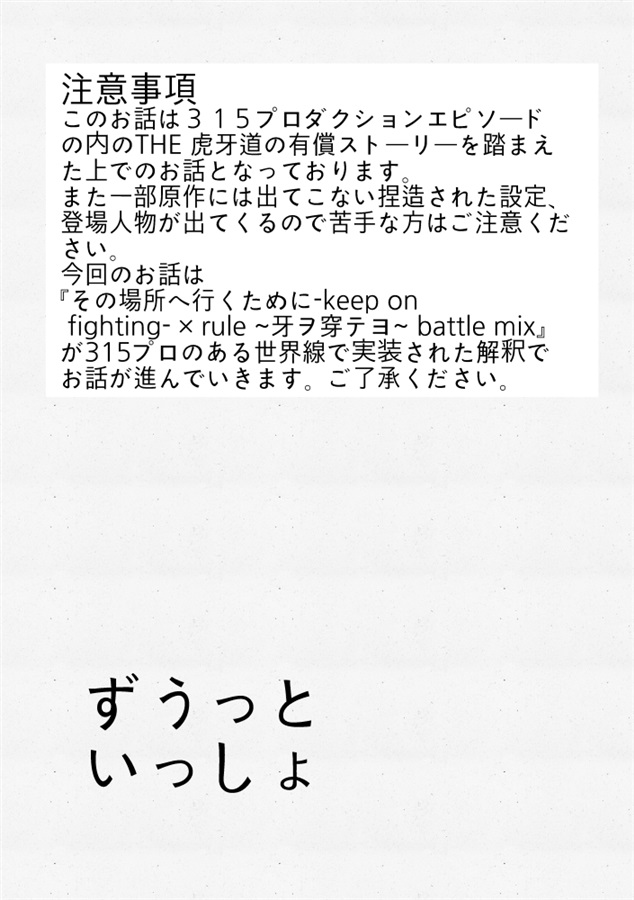 注意事項
このお話は３１５プロダクションエピソード
の内のTHE 虎牙道の有償ストーリーを踏まえ
た上でのお話となっております。
また一部原作には出てこない捏造された設定、
登場人物が出てくるので苦手な方はご注意くだ
さい。
今回のお話は
『その場所へ行くために-keep on
fighting-×rule ~牙ヲ穿テヨ~ battle mix』
が315プロのある世界線で実装された解釈で
お話が進んでいきます。ご了承ください。
ずうっと
いっしょ